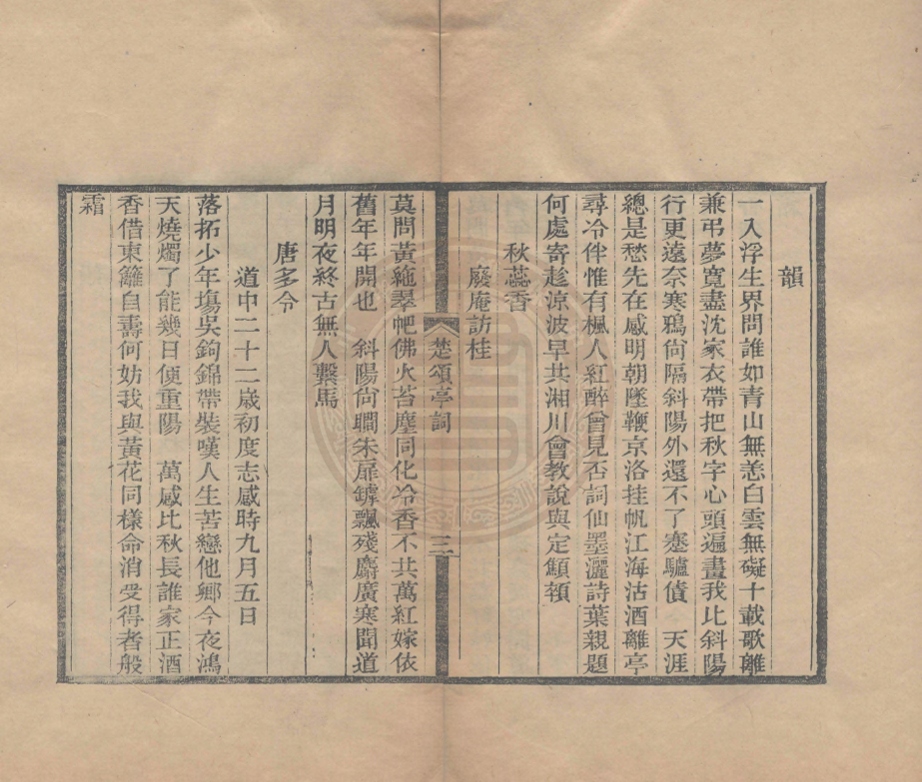 韻
一入浮生界問誰如青山無恙白雲無礙十載歌離
兼弔夢寬盡沈家衣帶把秋字心頭遍畫我比斜陽
行更遠奈寒鴉尙隔斜陽外還不了蹇驢債　天涯
總是愁先在感明朝墜鞭京洛挂帆江海沽酒離亭
尋冷伴惟有楓人紅醉曾見否詞仙墨灑詩葉親題
何處寄趁涼波早共湘川會教說與定顦顇
秋蕊香
廢庵訪桂
楚頌亭詞
三
莫問黃絁翠帊佛火苔塵同化冷香不共萬紅嫁依
舊年年開也　斜陽尙瞷朱扉罅飄殘麝廣寒聞道
月明夜終古無人繫馬
唐多令
道中二十二歲初度志感時九月五日
落拓少年塲吳鉤錦帶裝嘆人生苦戀他鄉今夜鴻
天燒燭了能幾日便重陽　萬感比秋長誰家正酒
香借東籬自壽何妨我與黃花同樣命消受得者般
霜